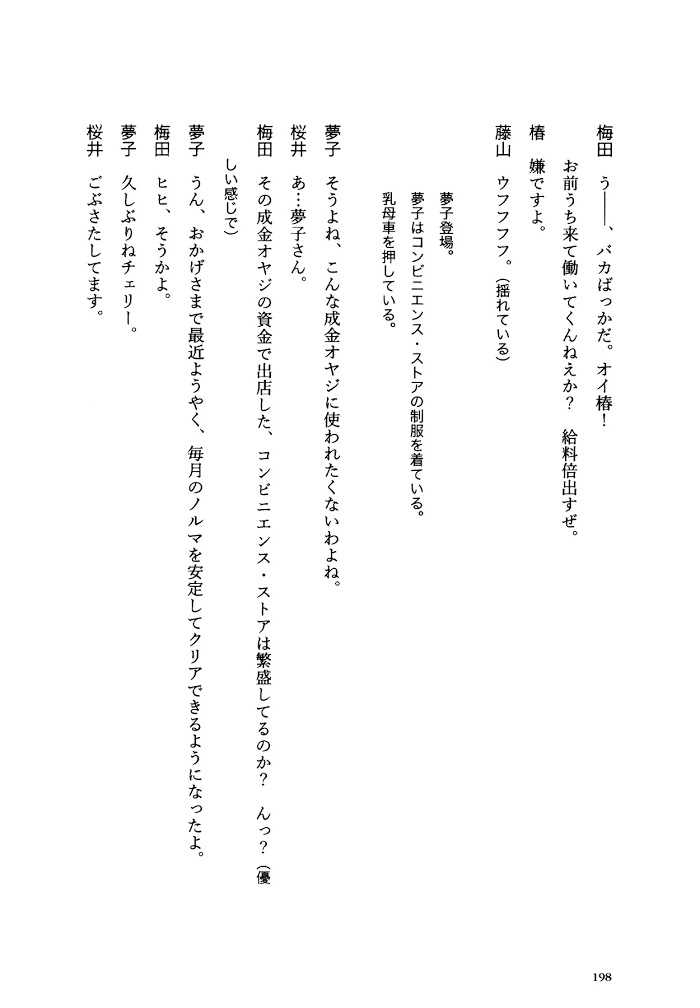 梅田　う――、バカばっかだ。オイ椿！
お前うち来て働いてくんねえか？　給料倍出すぜ。
椿　嫌ですよ。
藤山　ウフフフフ。（揺れている）
夢子登場。
夢子はコンビニエンス・ストアの制服を着ている。
乳母車を押している。
夢子　そうよね、こんな成金オヤジに使われたくないわよね。
桜井　あ…夢子さん。
梅田　その成金オヤジの資金で出店した、コンビニエンス・ストアは繁盛してるのか？　んっ？（優
しい感じで）
夢子　うん、おかげさまで最近ようやく、毎月のノルマを安定してクリアできるようになったよ。
梅田　ヒヒ、そうかよ。
夢子　久しぶりねチェリー。
桜井　ごぶさたしてます。
198